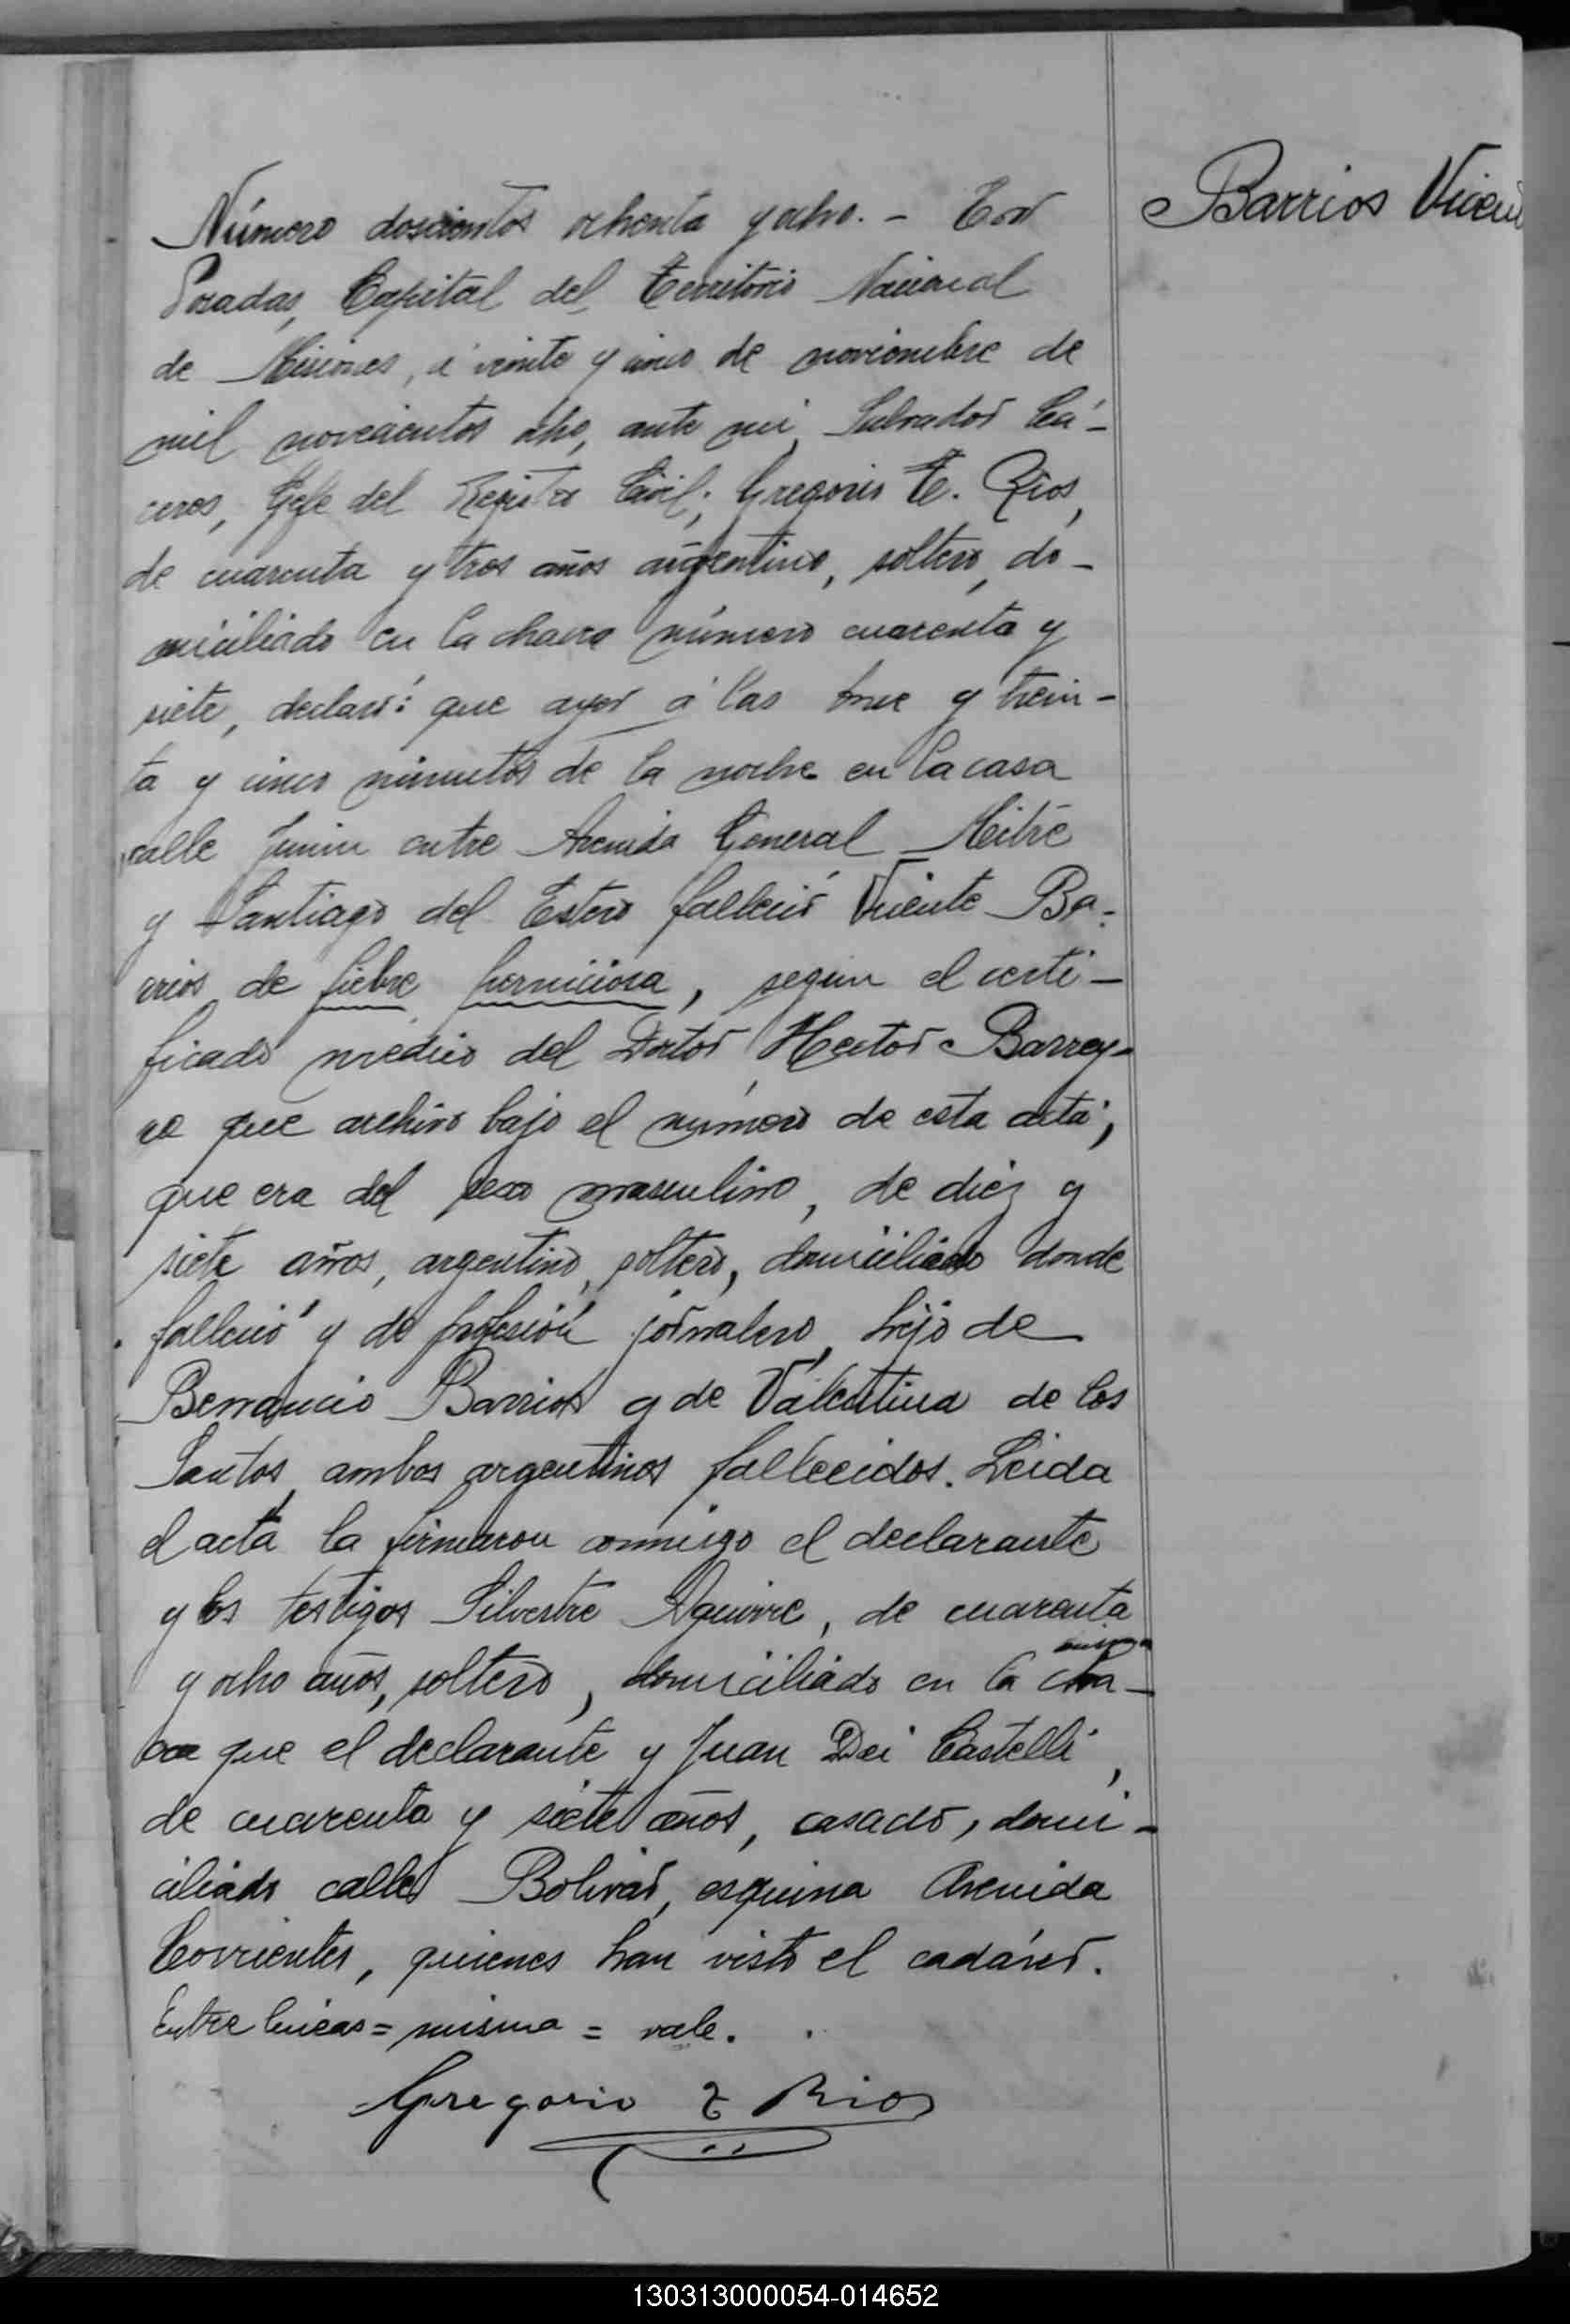 Barrios Vicen
Número doscientos ochenta y ocho. - En
Posadas, Capital del Territorio Nacional
de Misiones, á veinte y cinco de noviembre de
mil novecientos ocho, ante mi, Salvador
Gefe del Registro Civil; Gregorio E. Rios,
de cuarenta y tres años argentino, soltero, do-
miciliado en la chacra número cuarenta y
siete, declaró: que ayer á las once y trein-
ta y cinco minutos de la noche en la casa
calle Junin entre Avenida General Mitre
y Santiago del Estero falleció Vicente Ba-
rrios de fiebre perniciosa, segun el certi-
ficado medico del Doctor Hector Barrey-
ro que archivo bajo el número de esta acta;
que era del sexo masculino, de diez y
siete años, argentino, soltero, domiciliado donde
falleció y de profesión jornalero, hijo de
Barrios y de Valentina de los
Santos, ambos argentinos fallecidos. Leida
el acta la firmaron conmigo el declarante
y los testigos Silvestre Aguirre, de cuarenta
misma
y ocho años, soltero, domiciliado en la cha-
cra que el declarante y Juan Dei Castelli,
de cuarenta y siete años, casado, domi-
ciliado calle Bolivar, esquina Avenida
Corrientes, quienes han visto el cadáver.
Entre lineas = misma = vale.
Gregorio E Rios
130313000054-014652